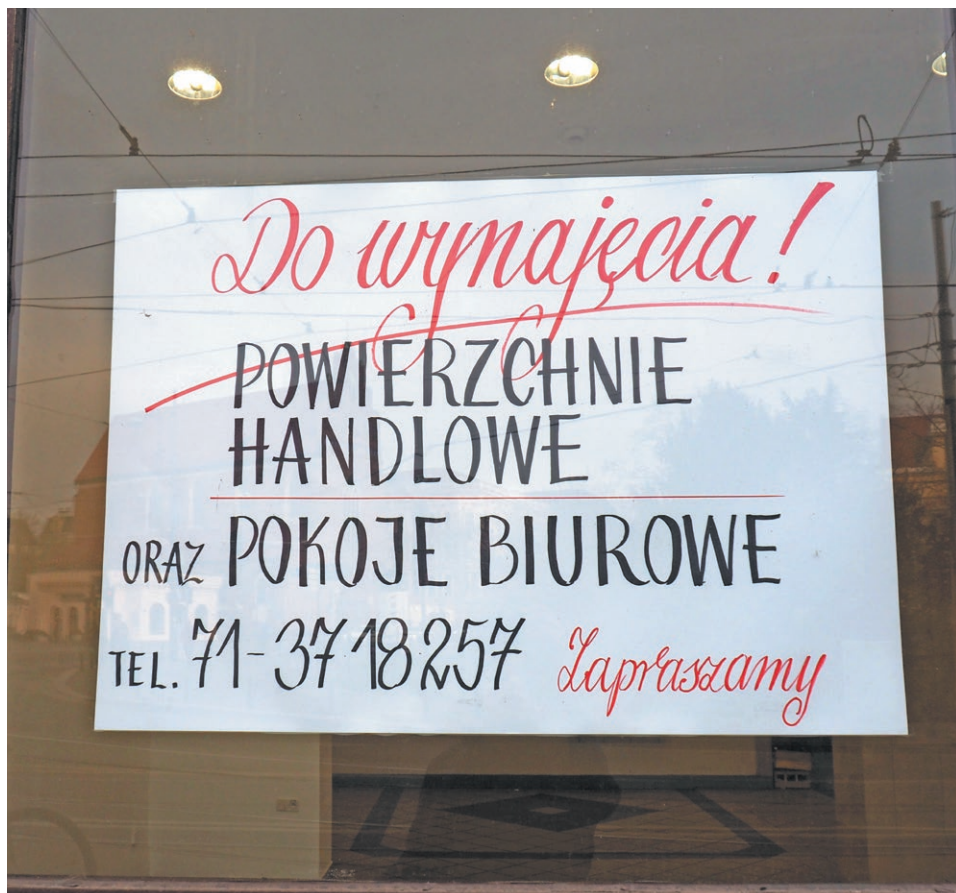 Do wynajęcia!
POWIERZCHNIE
HANDLOWE
ORAZ POKOJE BIUROWE
TEL. 71-37 18 257 Zapraszamy